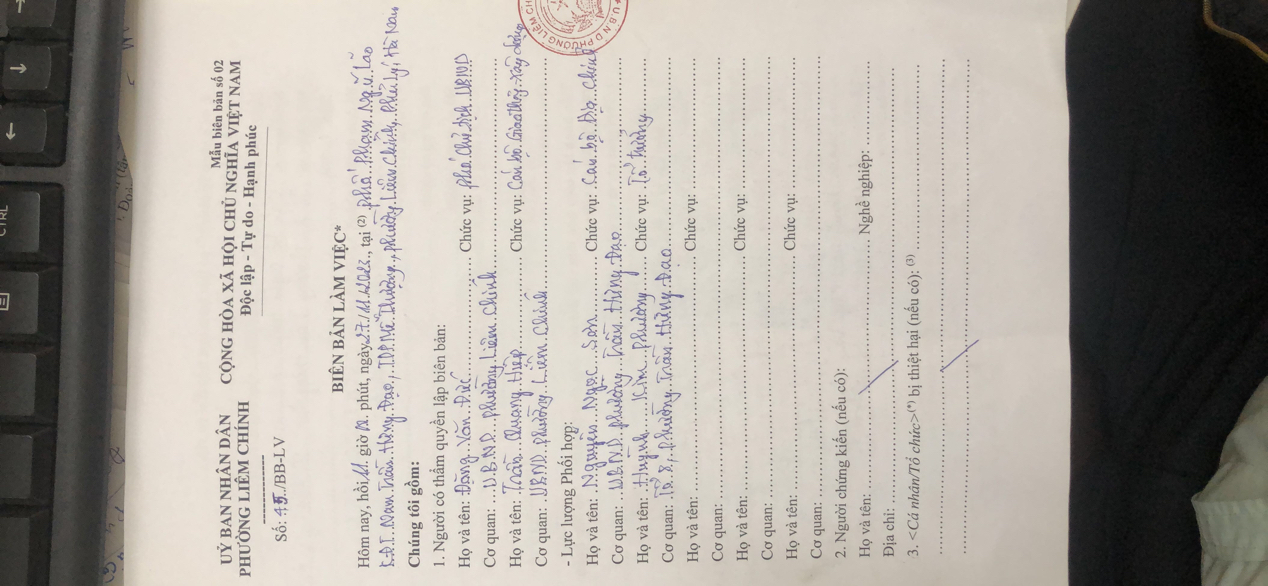 Mẫu biên bản số 02
UỶ BAN NHÂN DÂN
PHƯỜNG LIÊM CHÍNH
CỘNG HÒA XÃ HỘI CHỦ NGHĨA VIỆT NAM
Độc lập - Tự do - Hạnh phúc
Số: 45./BB-LV
BIÊN BẢN LÀM VIỆC*
Hôm nay, hồi 11 giờ phút, ngày 27/11/2022, tại (2) phố Phạm Ngũ Lão
Nam Trần Hưng Đạo, phường Liêm Chính, Phủ Lý, Hà Nam
Chúng tôi gồm:
1. Người có thẩm quyền lập biên bản:
Họ và tên: Đặng Văn Đức Chức vụ: Phó Chủ tịch UBND
Cơ quan: U.B.N.D phường Liêm Chính
Họ và tên: Trần Quang Hiệp Chức vụ: Cán bộ Giao thông - Xây dựng
Cơ quan: UBND phường Liêm Chính
- Lực lượng Phối hợp:
Họ và tên: Nguyễn Ngọc Sơn Chức vụ: Cán bộ Địa chính
Cơ quan: U.B.N.D phường Trần Hưng Đạo
Họ và tên: Huỳnh Kim Phường Chức vụ: Tổ trưởng
Cơ quan: Tổ 8, phường Trần Hưng Đạo
Họ và tên: Chức vụ:
Cơ quan:
Họ và tên: Chức vụ:
Cơ quan:
Họ và tên: Chức vụ:
Cơ quan:
2. Người chứng kiến (nếu có):
Họ và tên: Nghề nghiệp:
Địa chỉ:
3. <Cá nhân/Tổ chức>(*) bị thiệt hại (nếu có): (3)
U.B.N.D PHƯỜNG LIÊM
CTRL